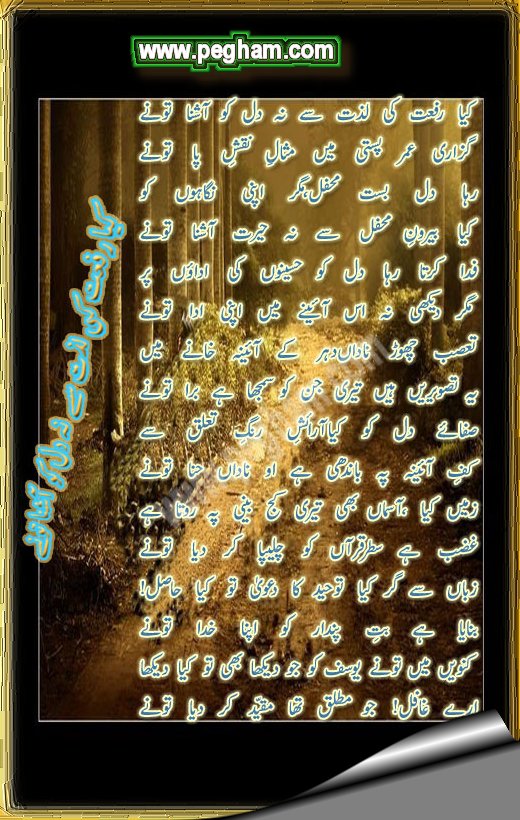 www.pegham.com
کیا رفعت کی لذت سے نہ دل کو آشنا تونے
کیا رفعت کی لذت سے نہ دل کو آشنا تونے
گزاری عمر پستی میں مثالِ نقشِ پا تونے
رہا دل بست محفل،مگر اپنی نگاہوں کو
کیا بیرونِ محفل سے نہ حیرت آشنا تونے
فدا کرتا رہا دل کو حسینوں کی اداؤں پر
مگر دیکھی نہ اس آئینے میں اپنی ادا تونے
تعصب چھوڑ ناداں!دہر کے آئینہ خانے میں
یہ تصویریں ہیں تیری جن کو سمجھا ہے برا تونے
صفائے دل کو کیا آرائشِ رنگِ تعلق سے
کفِ آئینہ پہ باندھی ہے او ناداں حنا تونے
زمیں کیا ،آسماں بھی تیری کج بینی پہ روتا ہے
غضب ہے سطرِقرآں کو چلیپا کر دیا تونے
زباں سے گر کیا توحید کا دعویٰ تو کیا حاصل!
بنایا ہے بتِ پندار کو اپنا خدا تونے
کنویں میں تونے یوسف کو جو دیکھا بھی تو کیا دیکھا
ارے غافل! جو مطلق تھا مقیّد کر دیا تونے